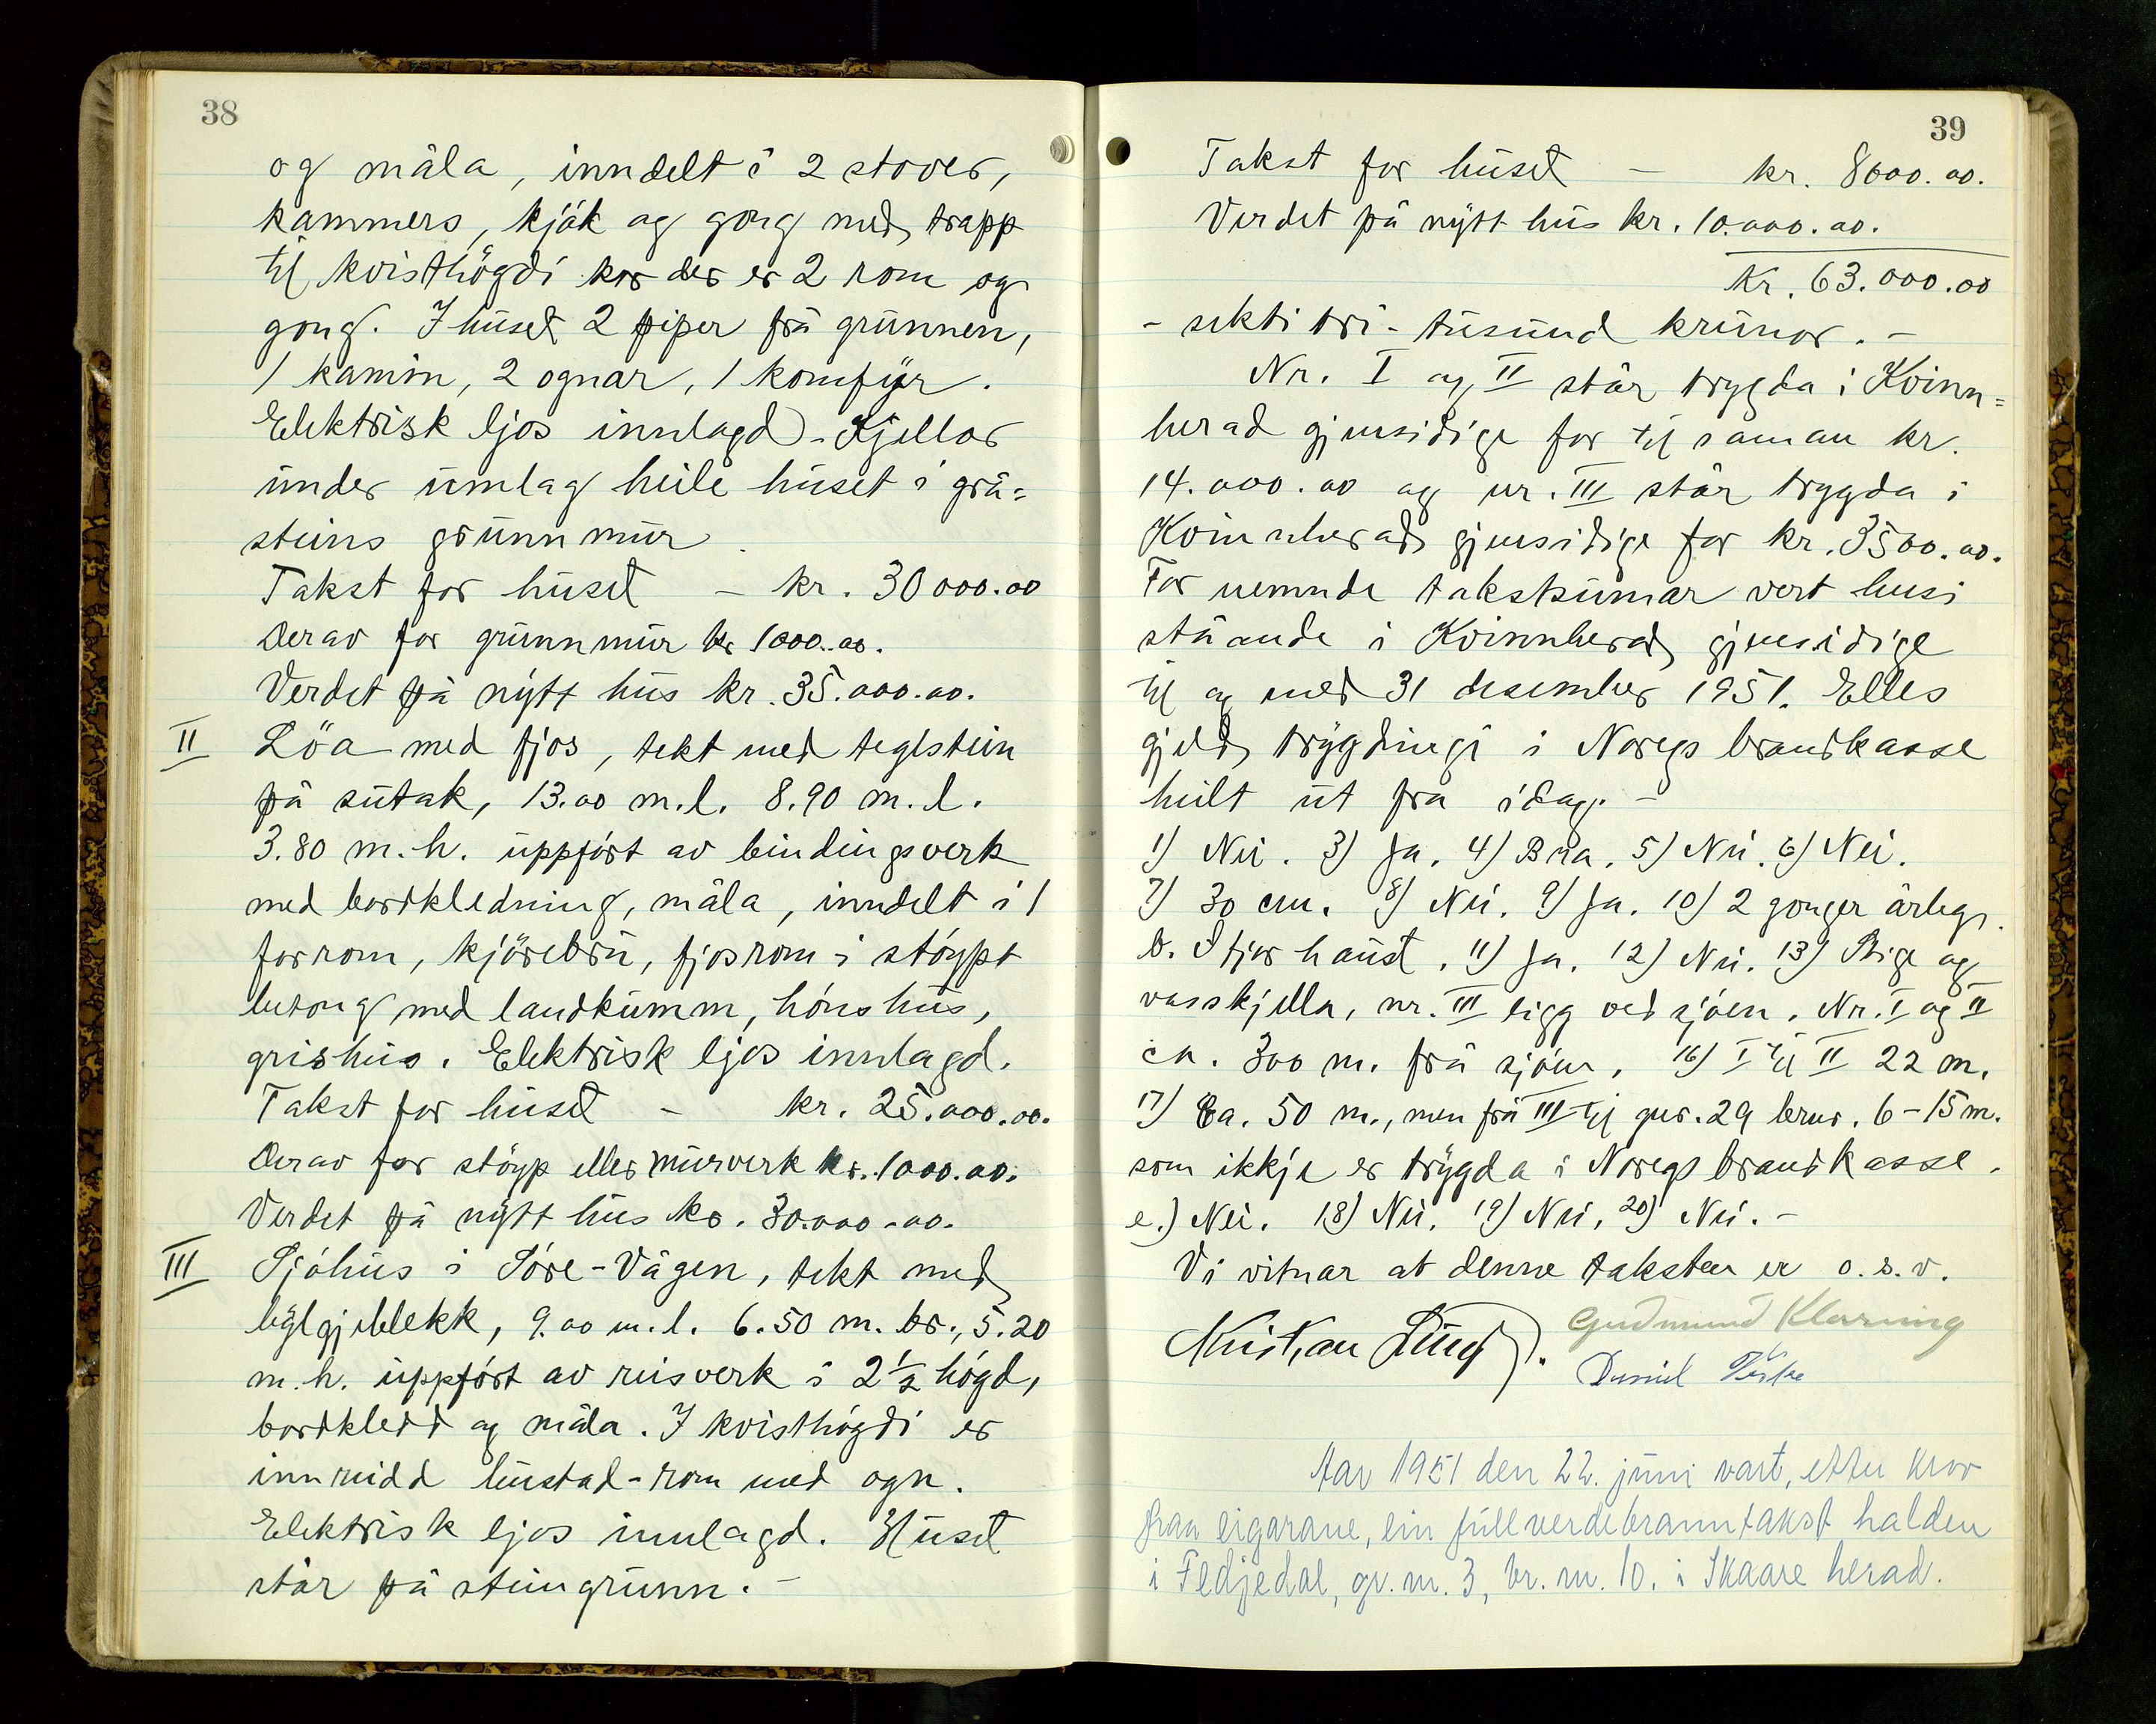 38
og måla, inndelt i 2 stover,
kammers, kjøk og gong med trapp
til kvisthögdi kor der er 2 rom og
gong. I huset 2 piper frå grunnen,
1 kamin, 2 ognar, 1 komfyr.
Elektrisk ljos innlagd. Kjellar
under umlag heile huset i grå=
steins grunnmur.
Takst for huset – kr. 30000.00
Derav for grunnmur kr 1000.00.
Verdet på nytt hus kr. 35.000.00.
II Löa med fjos, tekt med teglstein
på sutak, 13.00 m.l. 8.90 m. l.
3.80 m.h. uppført av bindingsverk
med bordkledning, måla, inndelt i 1
forrom, kjörebru, fjosrom i støypt
betong med landkumm, hønshus,
grishus. Elektrisk ljos innlagd.
Takst for huset – kr. 25.000.00.
Derav for støyp eller murverk kr. 1000.00.
Verdet på nytt hus kr. 30.000.00.
III Sjøhus i Søre-Vågen, tekt med
bylgjeblekk, 9.00 m.l. 6.50 m. br., 5.20
m.h. uppført av reisverk i 2 1/2 høgd,
bordkledd og måla. I kvisthøgdi er
innreidd bustad-rom med ogn.
Elektrisk ljos innlagd. Huset
står på steingrunn. –
39
Takst for huset – kr. 8000.00.
Verdet på nytt hus kr. 10.000.00.
Kr. 63.000.00
– seksti tri- tusund krunor. –
Nr. I og II står trygda i Kvinn=
herad gjensidige for til saman kr.
14.000.00 og nr. III står trygda i
Kvinnherad gjensidige for kr. 3500.00.
For nemnde takstsumar vert husi
ståande i Kvinnherad gjensidige
til og med 31 desember 1951. Elles
gjeld trygdingi i Noregs brandkasse
heilt ut fra idag. –
1) Nei. 3) Ja. 4) Bra. 5) Nei. 6) Nei.
7) 30 cm. 8) Nei. 9) Ja. 10) 2 gonger årleg.
b. I fjor haust. 11) Ja. 12) Nei. 13) Stige og
vasskjella, nr. III ligg ved sjøen. Nr. I og II
ca. 300 m. frå sjøen. 16) I til II 22 m.
17) Ca. 50 m., men frå III til gnr. 29 brnr. 6 – 15 m.
som ikkje er trygda i Noregs brandkasse.
e.) Nei. 18) Nei. 19) Nei. 20) Nei. –
Vi vitnar at denne taksten er o.s.v.
Gudmund Klovning
Kristian Lund.
Daniel
Aar 1951 den 22. juni vart, etter krav
fraa eigarane, ein fullverdebranntakst halden
i Fedjedal, gr. nr. 3, br. nr. 10. i Skaare herad.